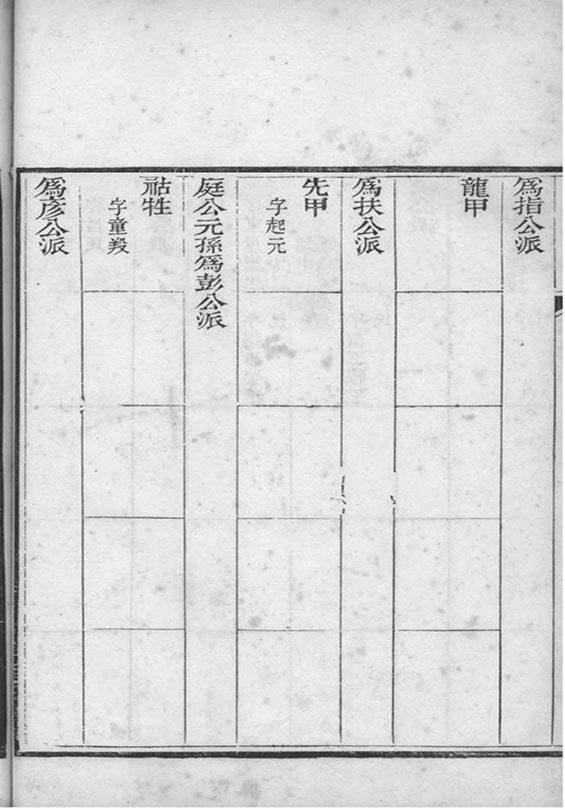 爲指公派
龍甲
爲扶公派
先甲
字起元
庭公元孫爲彭公派
祜牲
字童羖
爲彥公派